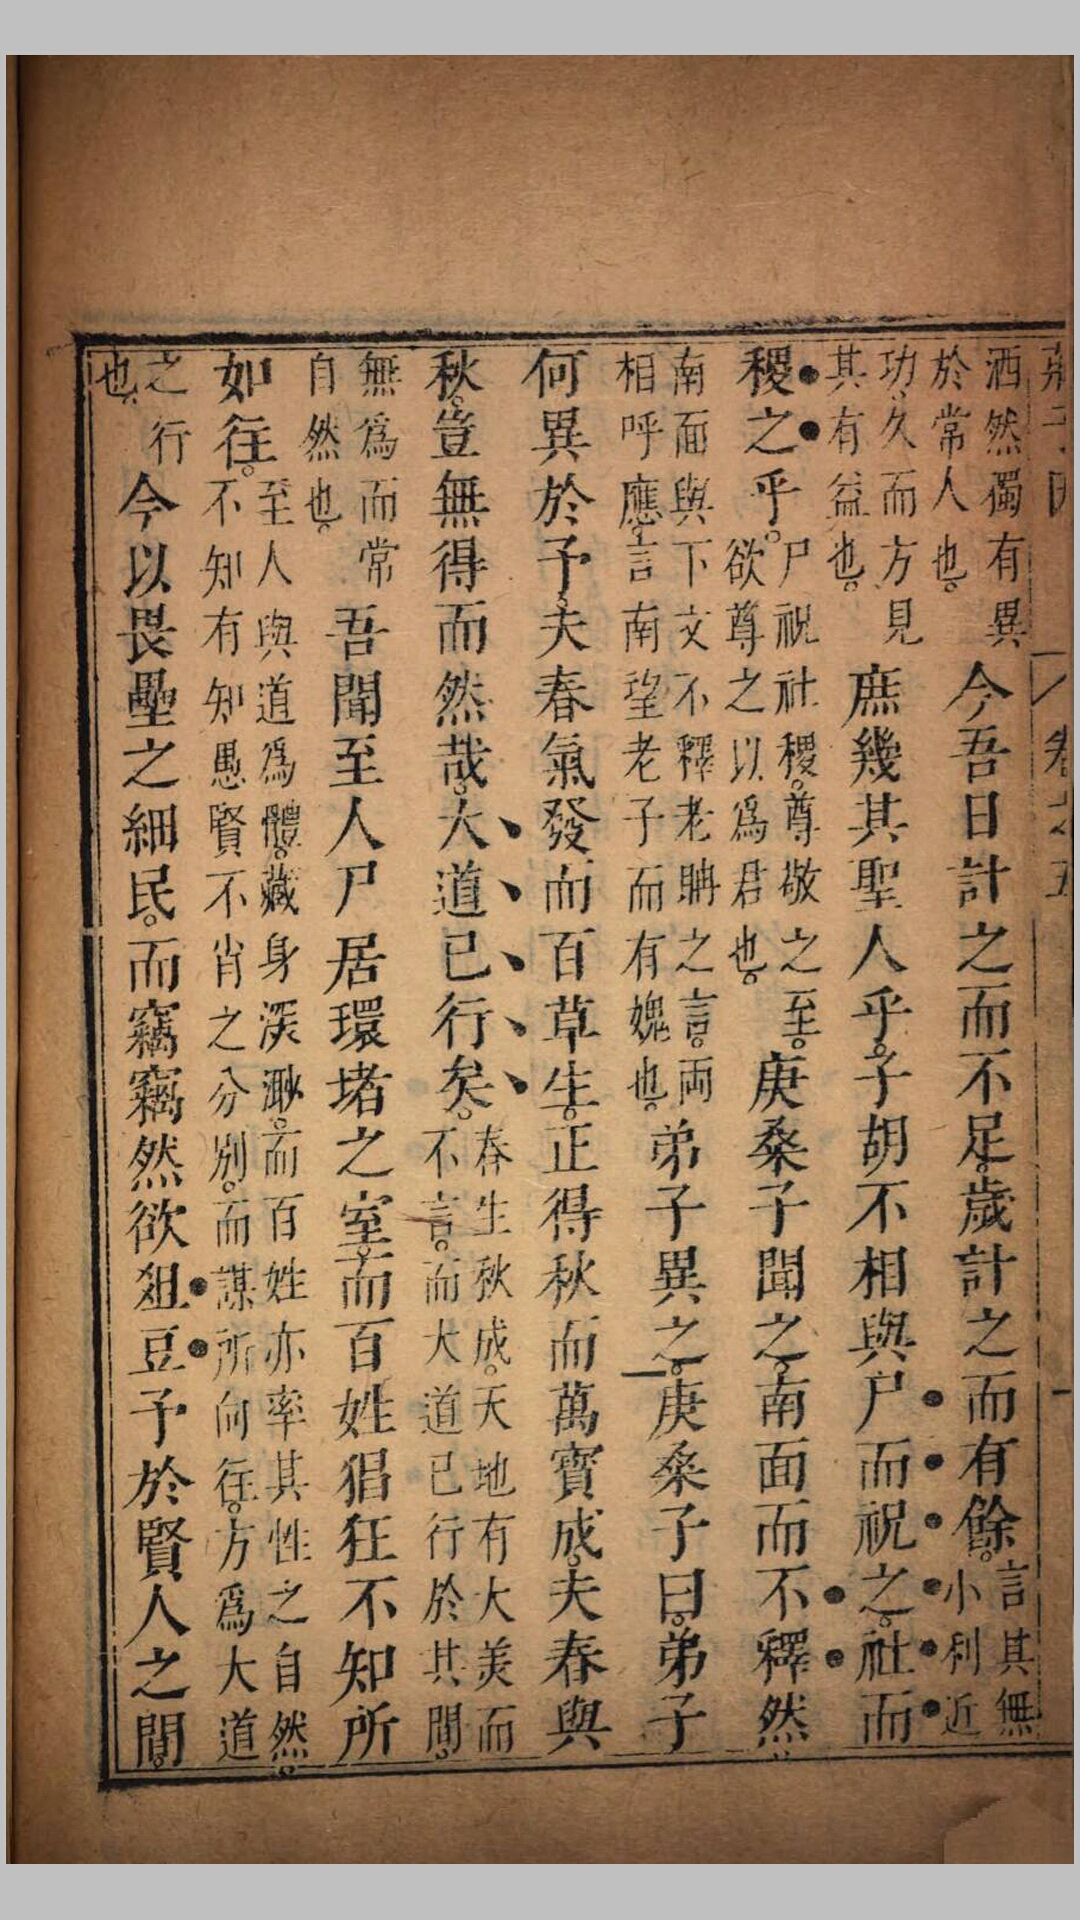 卷之五
洒然獨有異於常人也。今吾日計之而不足。歲計之而有餘。言其無小利近
功。久而方見其有益也。庶幾其聖人乎。子胡不相與尸而祝之。社而
稷之乎。尸祝社稷。尊敬之至。欲尊之以爲君也。庚桑子聞之。南面而不釋然。
南面與下文不釋老聃之言。両相呼應。言南望老子而有媿也。弟子異之。庚桑子曰。弟子
何異於予。夫春氣發而百草生。正得秋而萬寶成。夫春與
秋。豈無得而然哉。大道已行矣。春生秋成。天地有大美而不言。而大道已行於其間。
無爲而常自然也。吾聞至人尸居環堵之室。而百姓猖狂不知所
如徃。至人與道爲體。藏身深渺。而百姓亦率其性之自然。不知有知愚賢不肖之分别。而謀所向徃。方爲大道
之行也。今以畏壘之細民。而竊竊然欲俎豆予於賢人之間。